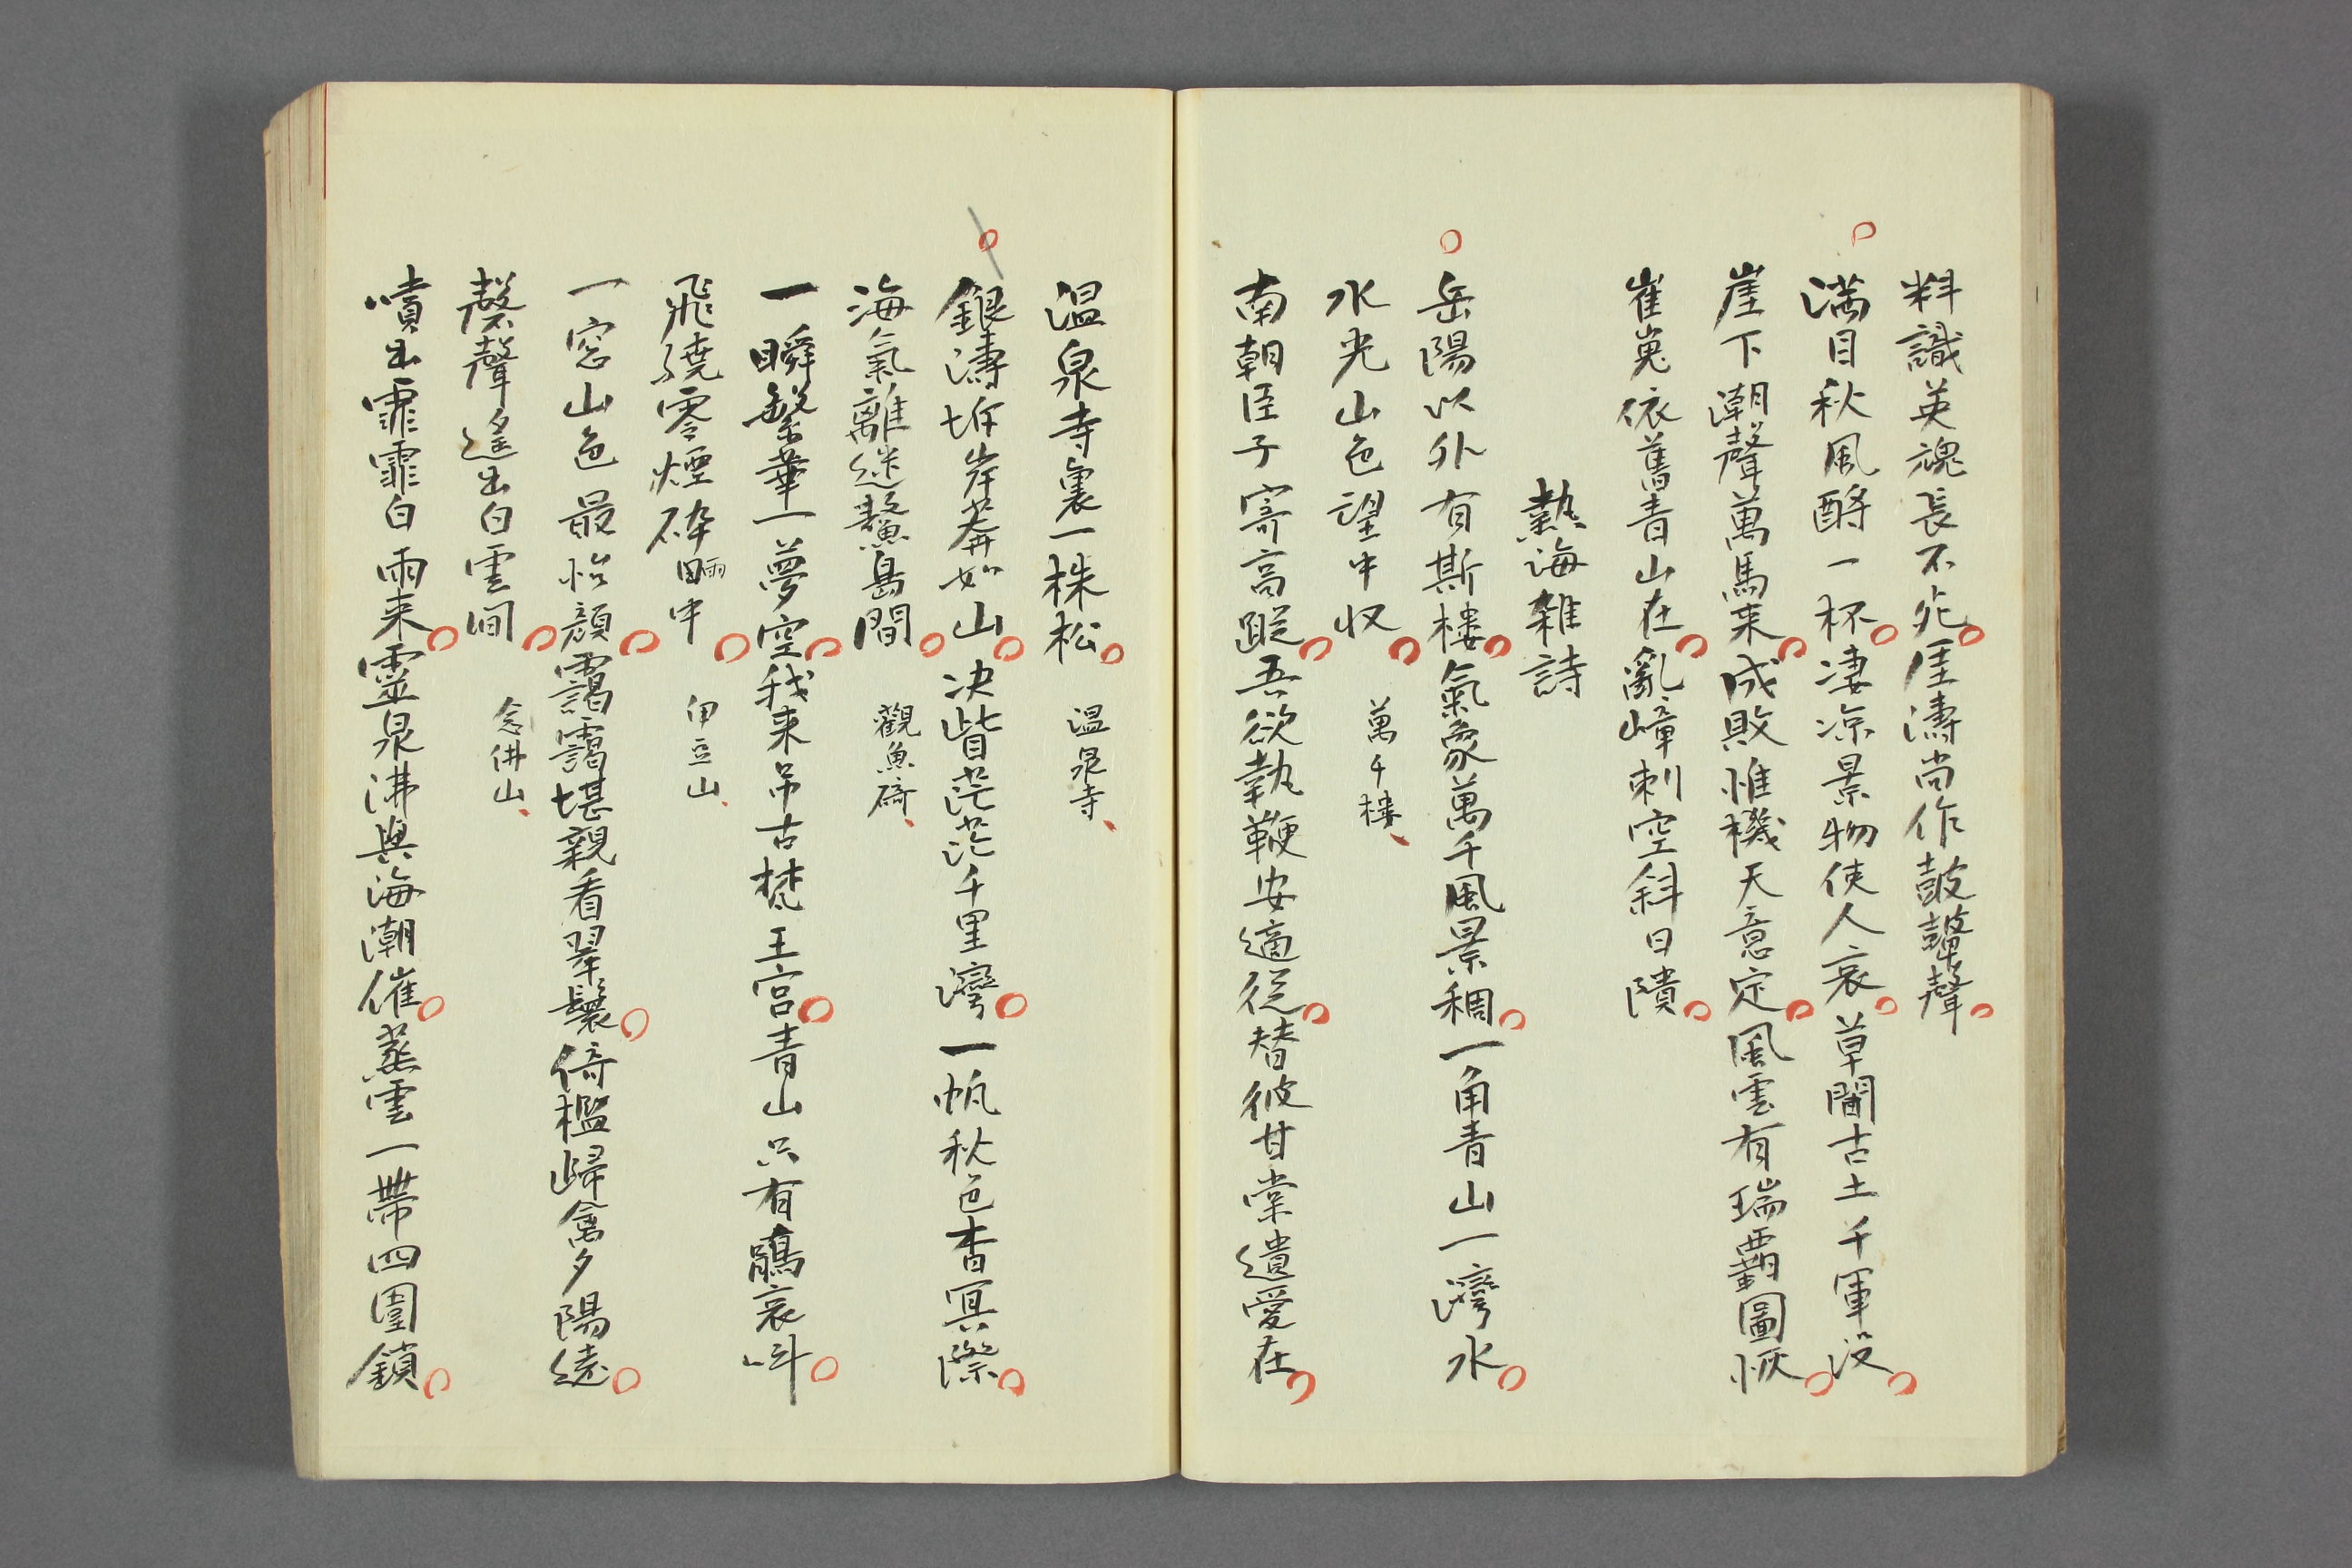 料識英魂長不死厓濤尚作鼓鼙聲
満目秋風酹一杯凄凉景物使人哀草間古土千軍没
崖下潮聲萬馬来成敗惟機天意定風雲有瑞覇圖恢
崔嵬依舊青山在亂嶂刺空斜日隤
熱海雜詩
岳陽以外有斯樓氣象萬千風景稠一角青山一灣水
水光山色望中収 萬千樓
南朝臣子寄高蹤吾欲執鞭安適従替彼甘棠遺愛在
温泉寺裏一株松 温泉寺
銀濤坼岸莽如山决眥茫茫千里灣一帆秋色杳冥際
海氣離迷鰲島間 觀魚磯
一瞬繁華一夢空我来吊古梵王宮青山只有鵑哀叫
飛繞零煙砕雨中 伊豆山
一窓山色最怡顔靄靄堪親看翠鬟倚檻歸禽夕陽遠
磬聲遙出白雲间 念佛山
噴出霏霏白雨来靈泉沸與海潮催蒸雲一帶四圍鎖